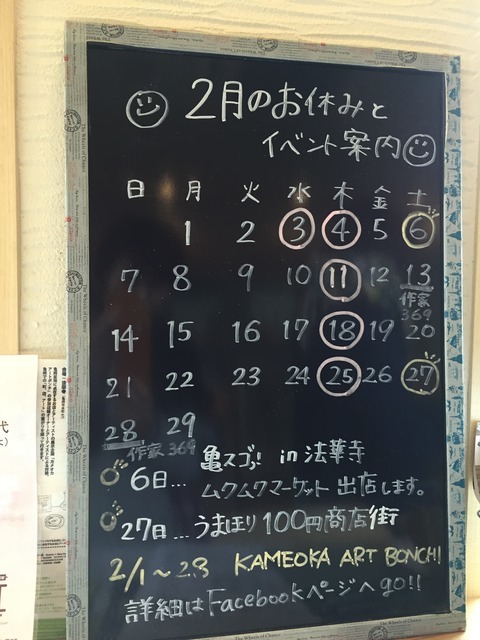 2月のお休みと
イベント案内
日 月 火 水 木 金 土
1 2 3 4 5 6
7 8 9 10 11 12 13
作家
369
14 15 16 17 18 19 20
21 22 23 24 25 26 27
28 29
作家 369
6日… 亀スゴッ! in 法華寺
ムクムクマーケット 出店します。
27日…うまほり100円商店街
2/1~28 KAMEOKA ART BONCHI
詳細はFacebookページへgo!!